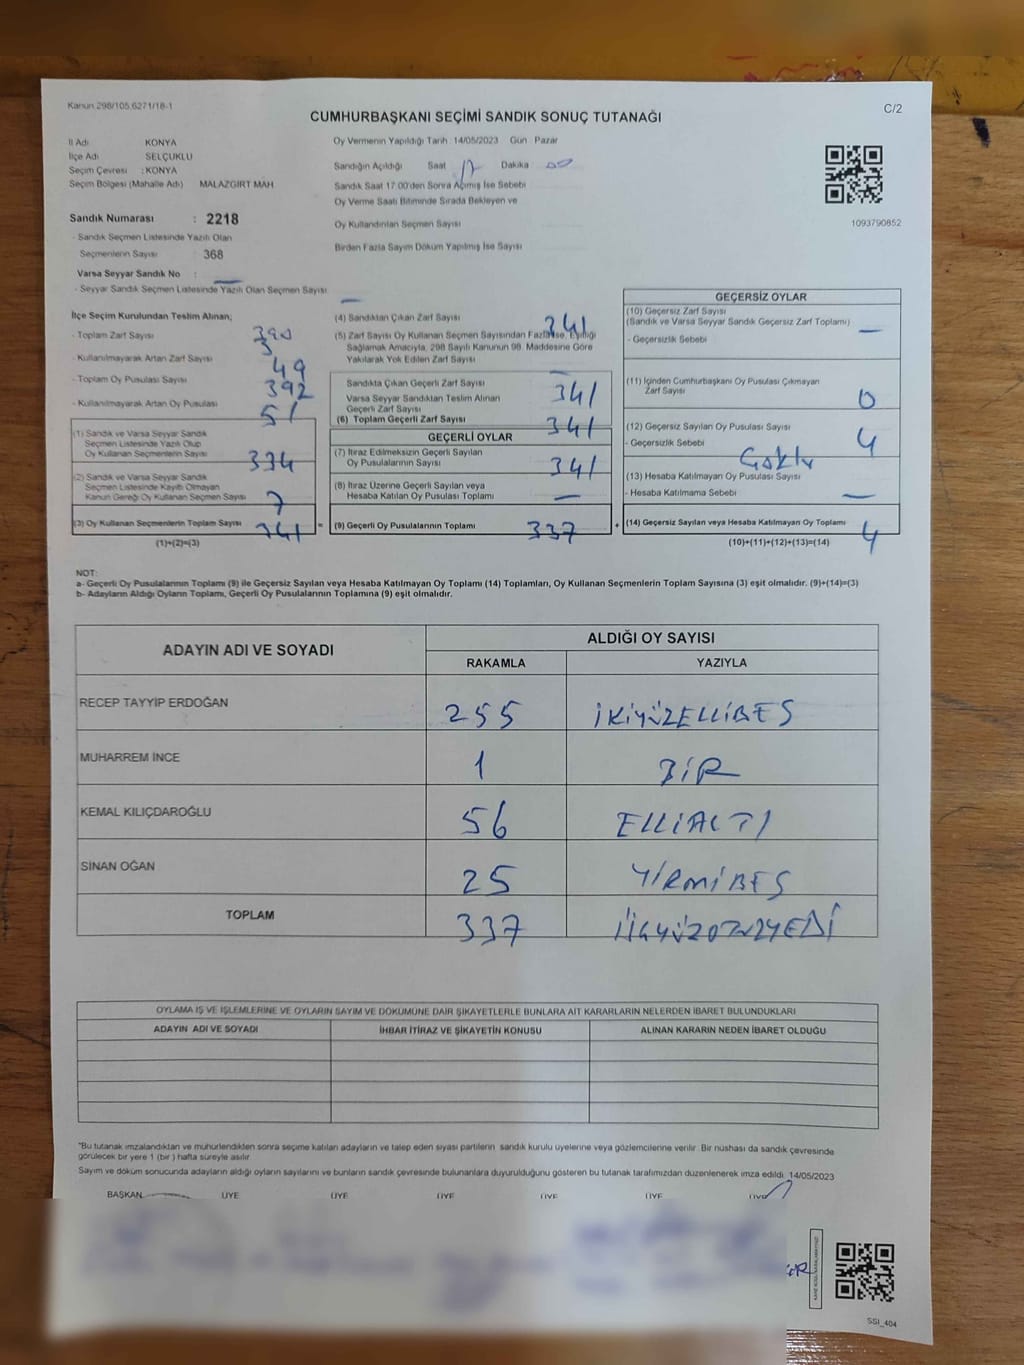 Kanun 298/105,6271/18-1
C/2
CUMHURBAŞKANI SEÇİMİ SANDIK SONUÇ TUTANAĞI
İl Adı KONYA
İlçe Adı SELÇUKLU
Seçim Çevresi : KONYA
Seçim Bölgesi (Mahalle Adı) MALAZGİRT MAH.
Sandık Numarası : 2218
- Sandık Seçmen Listesinde Yazılı Olan
Seçmenlerin Sayısı : 368
Varsa Seyyar Sandık No : —
- Seyyar Sandık Seçmen Listesinde Yazılı Olan Seçmen Sayısı : —
Oy Vermenin Yapıldığı Tarih : 14/05/2023 Gün : Pazar
Sandığın Açıldığı Saat 17 Dakika 00
Sandık Saat 17.00'den Sonra Açılmış İse Sebebi
Oy Verme Saati Bitiminde Sırada Bekleyen ve
Oy Kullandırılan Seçmen Sayısı
Birden Fazla Sayım Döküm Yapılmış İse Sayısı
1093790852
İlçe Seçim Kurulundan Teslim Alınan;
- Toplam Zarf Sayısı 390
- Kullanılmayarak Artan Zarf Sayısı 49
- Toplam Oy Pusulası Sayısı 392
- Kullanılmayarak Artan Oy Pusulası 51
(1) Sandık ve Varsa Seyyar Sandık
Seçmen Listesinde Yazılı Olup
Oy Kullanan Seçmenlerin Sayısı 334
(2) Sandık ve Varsa Seyyar Sandık
Seçmen Listesinde Kayıtlı Olmayan
Kanun Gereği Oy Kullanan Seçmen Sayısı 7
(3) Oy Kullanan Seçmenlerin Toplam Sayısı 341
(1)+(2)=(3)
(4) Sandıktan Çıkan Zarf Sayısı 341
(5) Zarf Sayısı Oy Kullanan Seçmen Sayısından Fazla ise, Eşitliği
Sağlamak Amacıyla, 298 Sayılı Kanunun 98. Maddesine Göre
Yakılarak Yok Edilen Zarf Sayısı —
Sandıkta Çıkan Geçerli Zarf Sayısı 341
Varsa Seyyar Sandıktan Teslim Alınan
Geçerli Zarf Sayısı
(6) Toplam Geçerli Zarf Sayısı 341
GEÇERLİ OYLAR
(7) İtiraz Edilmeksizin Geçerli Sayılan
Oy Pusulalarının Sayısı 341
(8) İtiraz Üzerine Geçerli Sayılan veya
Hesaba Katılan Oy Pusulası Toplamı —
= (9) Geçerli Oy Pusulalarının Toplamı 337
GEÇERSİZ OYLAR
(10) Geçersiz Zarf Sayısı
(Sandık ve Varsa Seyyar Sandık Geçersiz Zarf Toplamı) —
- Geçersizlik Sebebi
(11) İçinden Cumhurbaşkanı Oy Pusulası Çıkmayan
Zarf Sayısı 0
(12) Geçersiz Sayılan Oy Pusulası Sayısı 4
- Geçersizlik Sebebi
(13) Hesaba Katılmayan Oy Pusulası Sayısı —
- Hesaba Katılmama Sebebi
+ (14) Geçersiz Sayılan veya Hesaba Katılmayan Oy Toplamı 4
(10)+(11)+(12)+(13)=(14)
NOT:
a- Geçerli Oy Pusulalarının Toplamı (9) ile Geçersiz Sayılan veya Hesaba Katılmayan Oy Toplamı (14) Toplamları, Oy Kullanan Seçmenlerin Toplam Sayısına (3) eşit olmalıdır. (9)+(14)=(3)
b- Adayların Aldığı Oyların Toplamı, Geçerli Oy Pusulalarının Toplamına (9) eşit olmalıdır.
ADAYIN ADI VE SOYADI ALDIĞI OY SAYISI
RAKAMLA YAZIYLA
RECEP TAYYİP ERDOĞAN 255 İKİYÜZELLİBEŞ
MUHARREM İNCE 1 BİR
KEMAL KILIÇDAROĞLU 56 ELLİALTI
SİNAN OĞAN 25 YİRMİBEŞ
TOPLAM 337
OYLAMA İŞ VE İŞLEMLERİNE VE OYLARIN SAYIM VE DÖKÜMÜNE DAİR ŞİKAYETLERLE BUNLARA AİT KARARLARIN NELERDEN İBARET BULUNDUKLARI
ADAYIN ADI VE SOYADI İHBAR İTİRAZ VE ŞİKAYETİN KONUSU ALINAN KARARIN NEDEN İBARET OLDUĞU
"Bu tutanak imzalandıktan ve mühürlendikten sonra seçime katılan adayların ve talep eden siyasi partilerin sandık kurulu üyelerine veya gözlemcilerine verilir. Bir nüshası da sandık çevresinde
görülecek bir yere 1 (bir) hafta süreyle asılır.
Sayım ve döküm sonucunda adayların aldığı oyların sayılarını ve bunların sandık çevresinde bulunanlara duyurulduğunu gösteren bu tutanak tarafımızdan düzenlenerek imza edildi. 14/05/2023
BAŞKAN ÜYE ÜYE ÜYE ÜYE ÜYE ÜYE
SSI_404